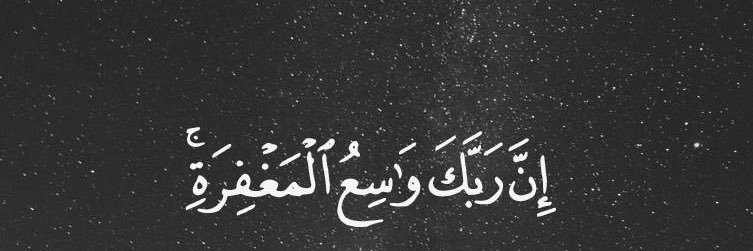 إِنَّ رَبَّكَ وَٰسِعُ ٱلْمَغْفِرَةِ ۚ